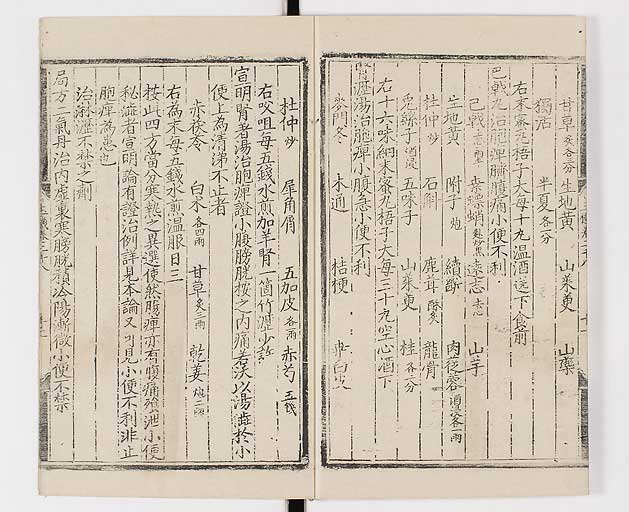 甘草炙各二分 生地黃 山茱萸 山藥
獨活 半夏各一分
右末蜜丸梧子大每十丸温酒送下食前
巴戟丸治胞痺臍腹痛小便不利
巴戟去心 桑螵蛸 遠志去心 山芋
生地黃 附子炮 續断 肉苁蓉酒浸各一兩
杜仲炒 石斛 鹿茸酥炙 龍骨
兎絲子酒浸 五味子 山茱萸 桂各三分
右十六味細末蜜丸梧子大每三十丸空心酒下
腎瀝湯治胞痺小腹急小便不利
麥門冬 木通 桔梗 桑白皮
杜仲炒 犀角屑 五加皮各一兩 赤芍五錢
右㕮咀每五錢水煎加羊腎一箇竹瀝少許
宣明腎著湯治胞痺證小腹膀胱按之内痛若沃以湯澁於小
便上為清涕不止者
赤茯苓 白朮各四兩 甘草炙三兩 乾姜炮二兩
右為末每五錢水煎温服日三
按此四方當分寒熱之異選使然腸痺亦有腹痛飱泄小便
秘澁者宣明論有證治例詳見本論又可見小便不利非止
胞痺為患也
治淋瀝不禁之劑
局方二氣丹治内虛裏寒膀胱積冷陽漸微小便不禁